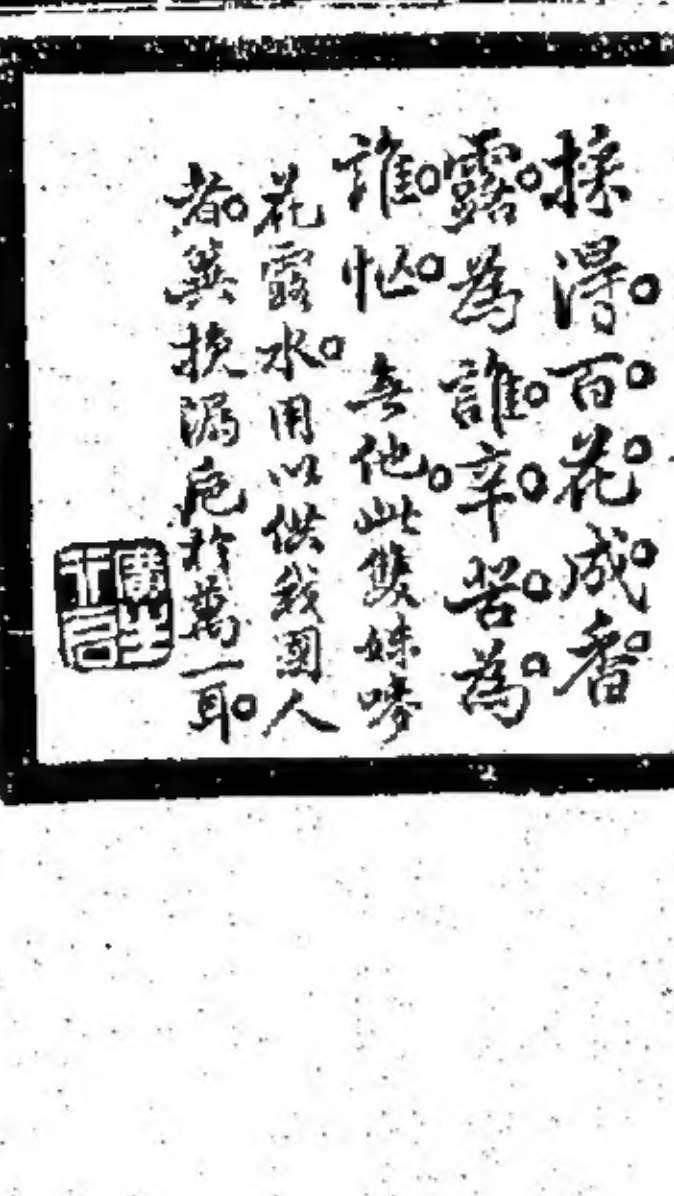 採得百花成香
露為誰辛苦為
誰忙 無他此雙妹嘜
花露水用以供我國人
者冀挽漏卮於萬一耳
廣生行石